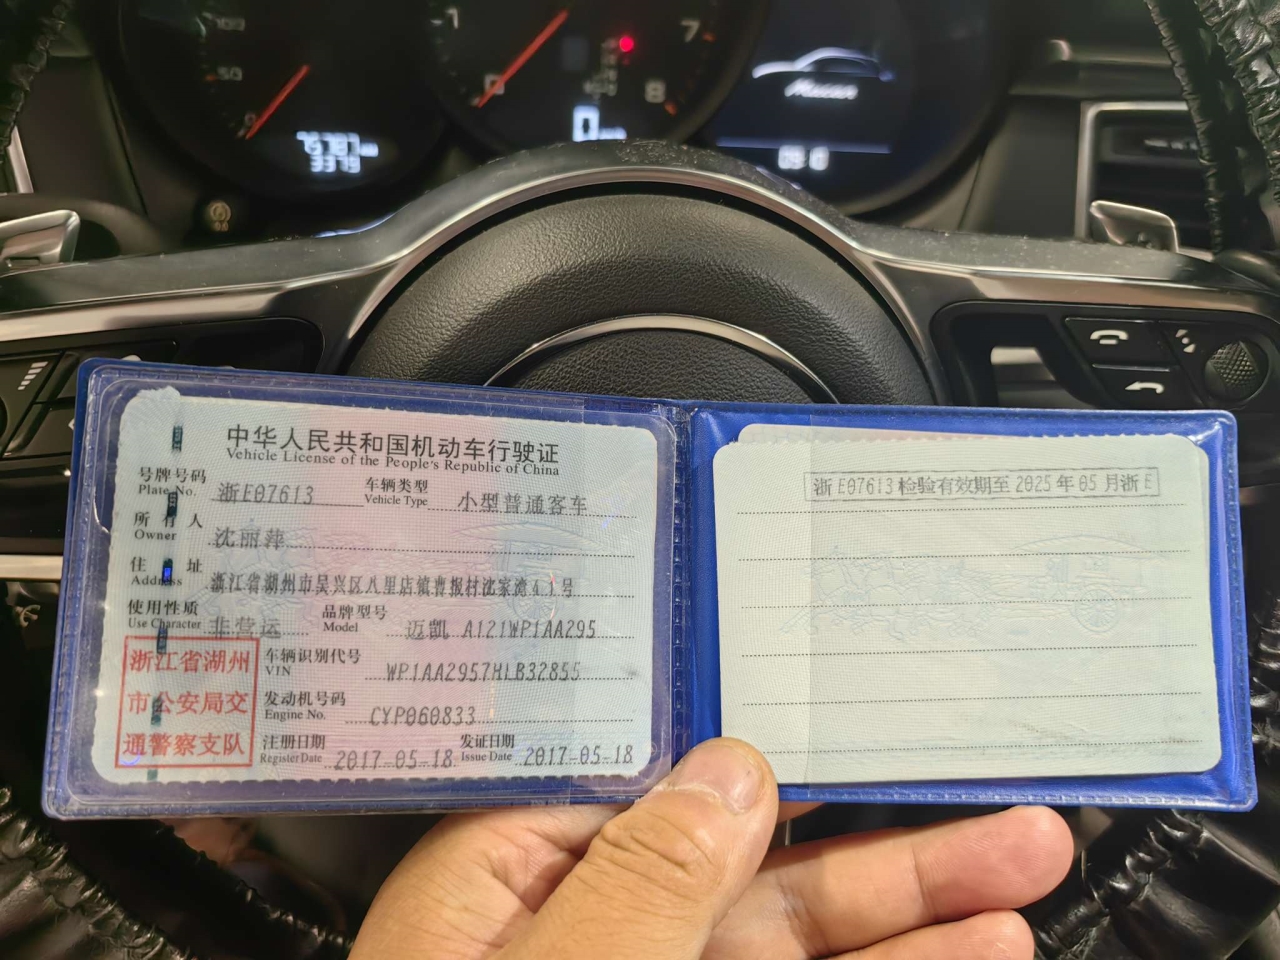 100
50
0
75787 km
3379
1
0
7
8
0
Macan
09:10
中华人民共和国机动车行驶证
Vehicle License of the People's Republic of China
号牌号码 浙E07613 车辆类型 小型普通客车
Plate No. Vehicle Type
所有人 沈丽萍
Owner
住址 浙江省湖州市吴兴区八里店镇曹报村沈家湾41号
Address
使用性质 非营运 品牌型号 迈凯 A121WP1AA295
Use Character Model
浙江省湖州
市公安局交
通警察支队
车辆识别代号 WP1AA2957HLB32855
VIN
发动机号码 CYP060833
Engine No.
注册日期 2017-05-18 发证日期 2017-05-18
Register Date Issue Date
浙E07613检验有效期至2025年05月浙E